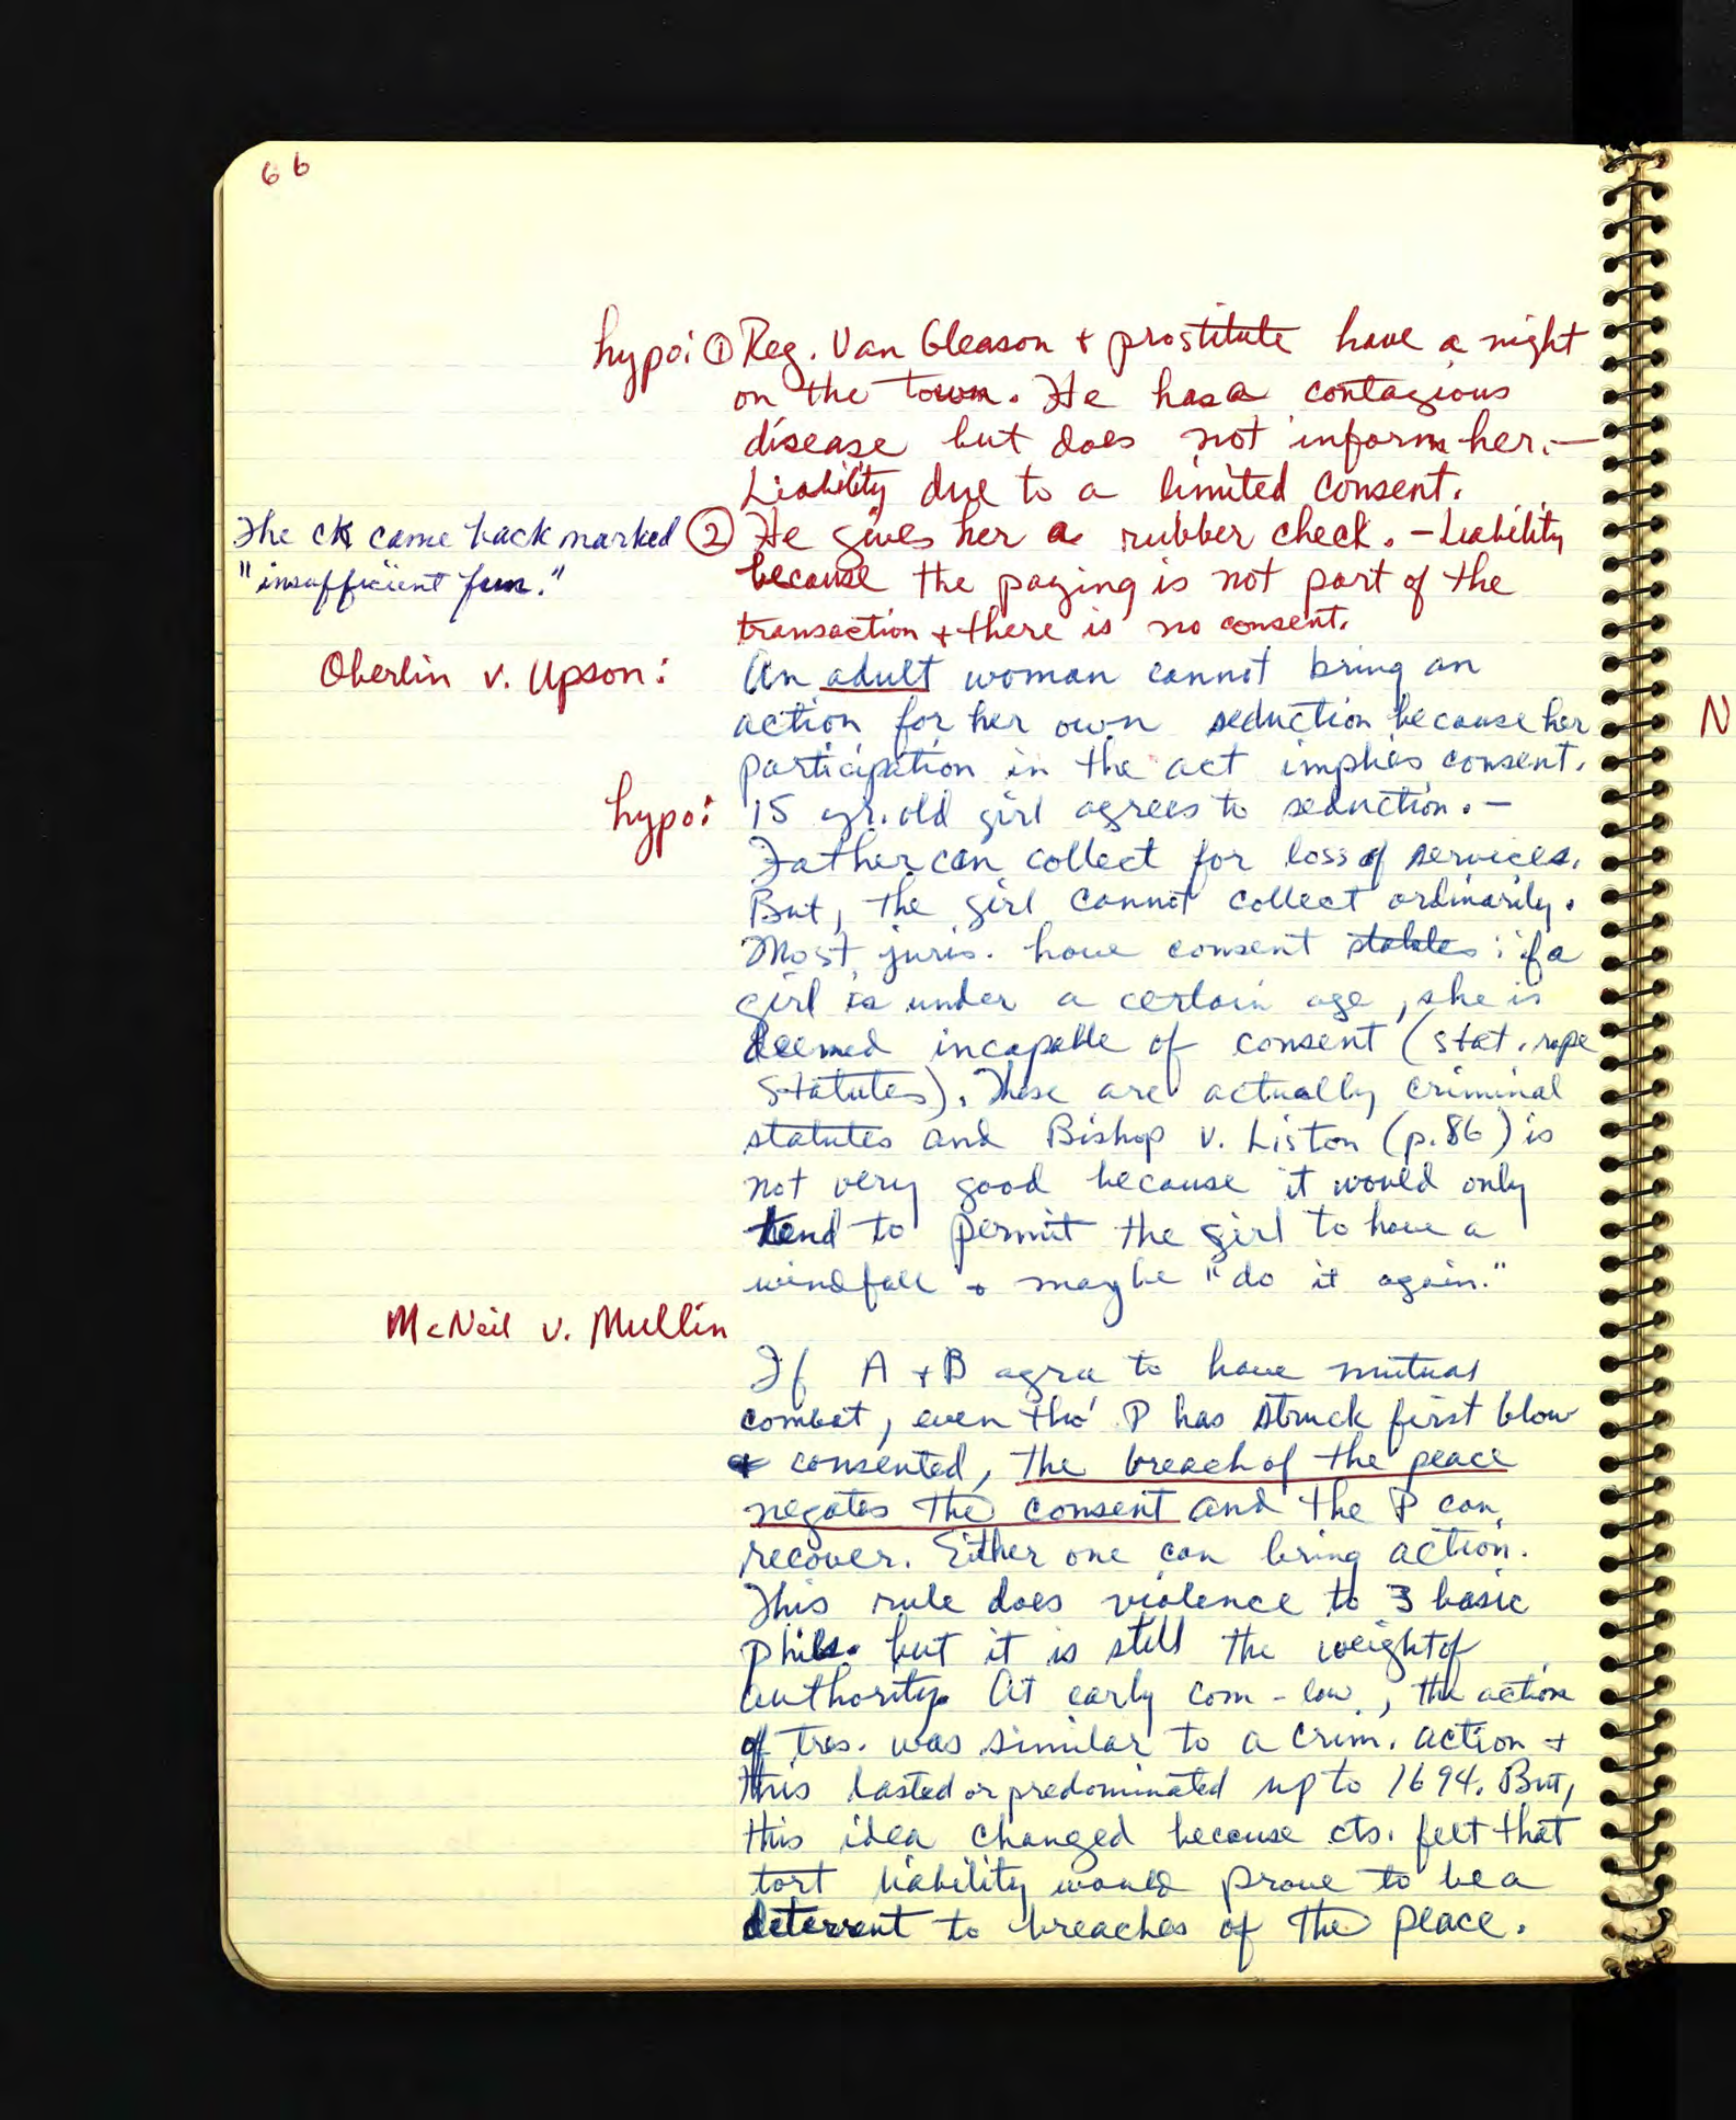 66
hypo: ① Reg. Van Gleason + prostitute have a night
on the town. He has a contagious
disease but does not inform her. —
Liability due to a limited consent.
The ck came back marked ② He gives her a rubber check. - Liability
"insufficient fun." because the paying is not part of the
transaction + there is no consent.
Oberlin v. Upson: An adult woman cannot bring an
action for her own seduction because her
participation in the act implies consent.
hypo: 15 yr. old girl agrees to seduction. —
Father can collect for loss of services.
But, the girl cannot collect ordinarily.
Most juris. have consent : if a
girl is under a certain age, she is
deemed incapable of consent (stat. rape
statutes). These are actually criminal
statutes and Bishop v. Liston (p. 86) is
not very good because it would only
tend to permit the girl to have a
windfall + maybe "do it again."
McNeil v. Mullin
If A + B agree to have mutual
combat, even tho' P has struck first blow
+ consented, the breach of the peace
negates the consent and the P can
recover. Either one can bring action.
This rule does violence to 3 basic
phils. but it is still the weight of
authority. At early com-law, the action
of tres. was similar to a crim. action +
this lasted or predominated up to 1694. But,
this idea changed because cts. felt that
tort liability would prove to be a
deterrent to breaches of the peace.
N